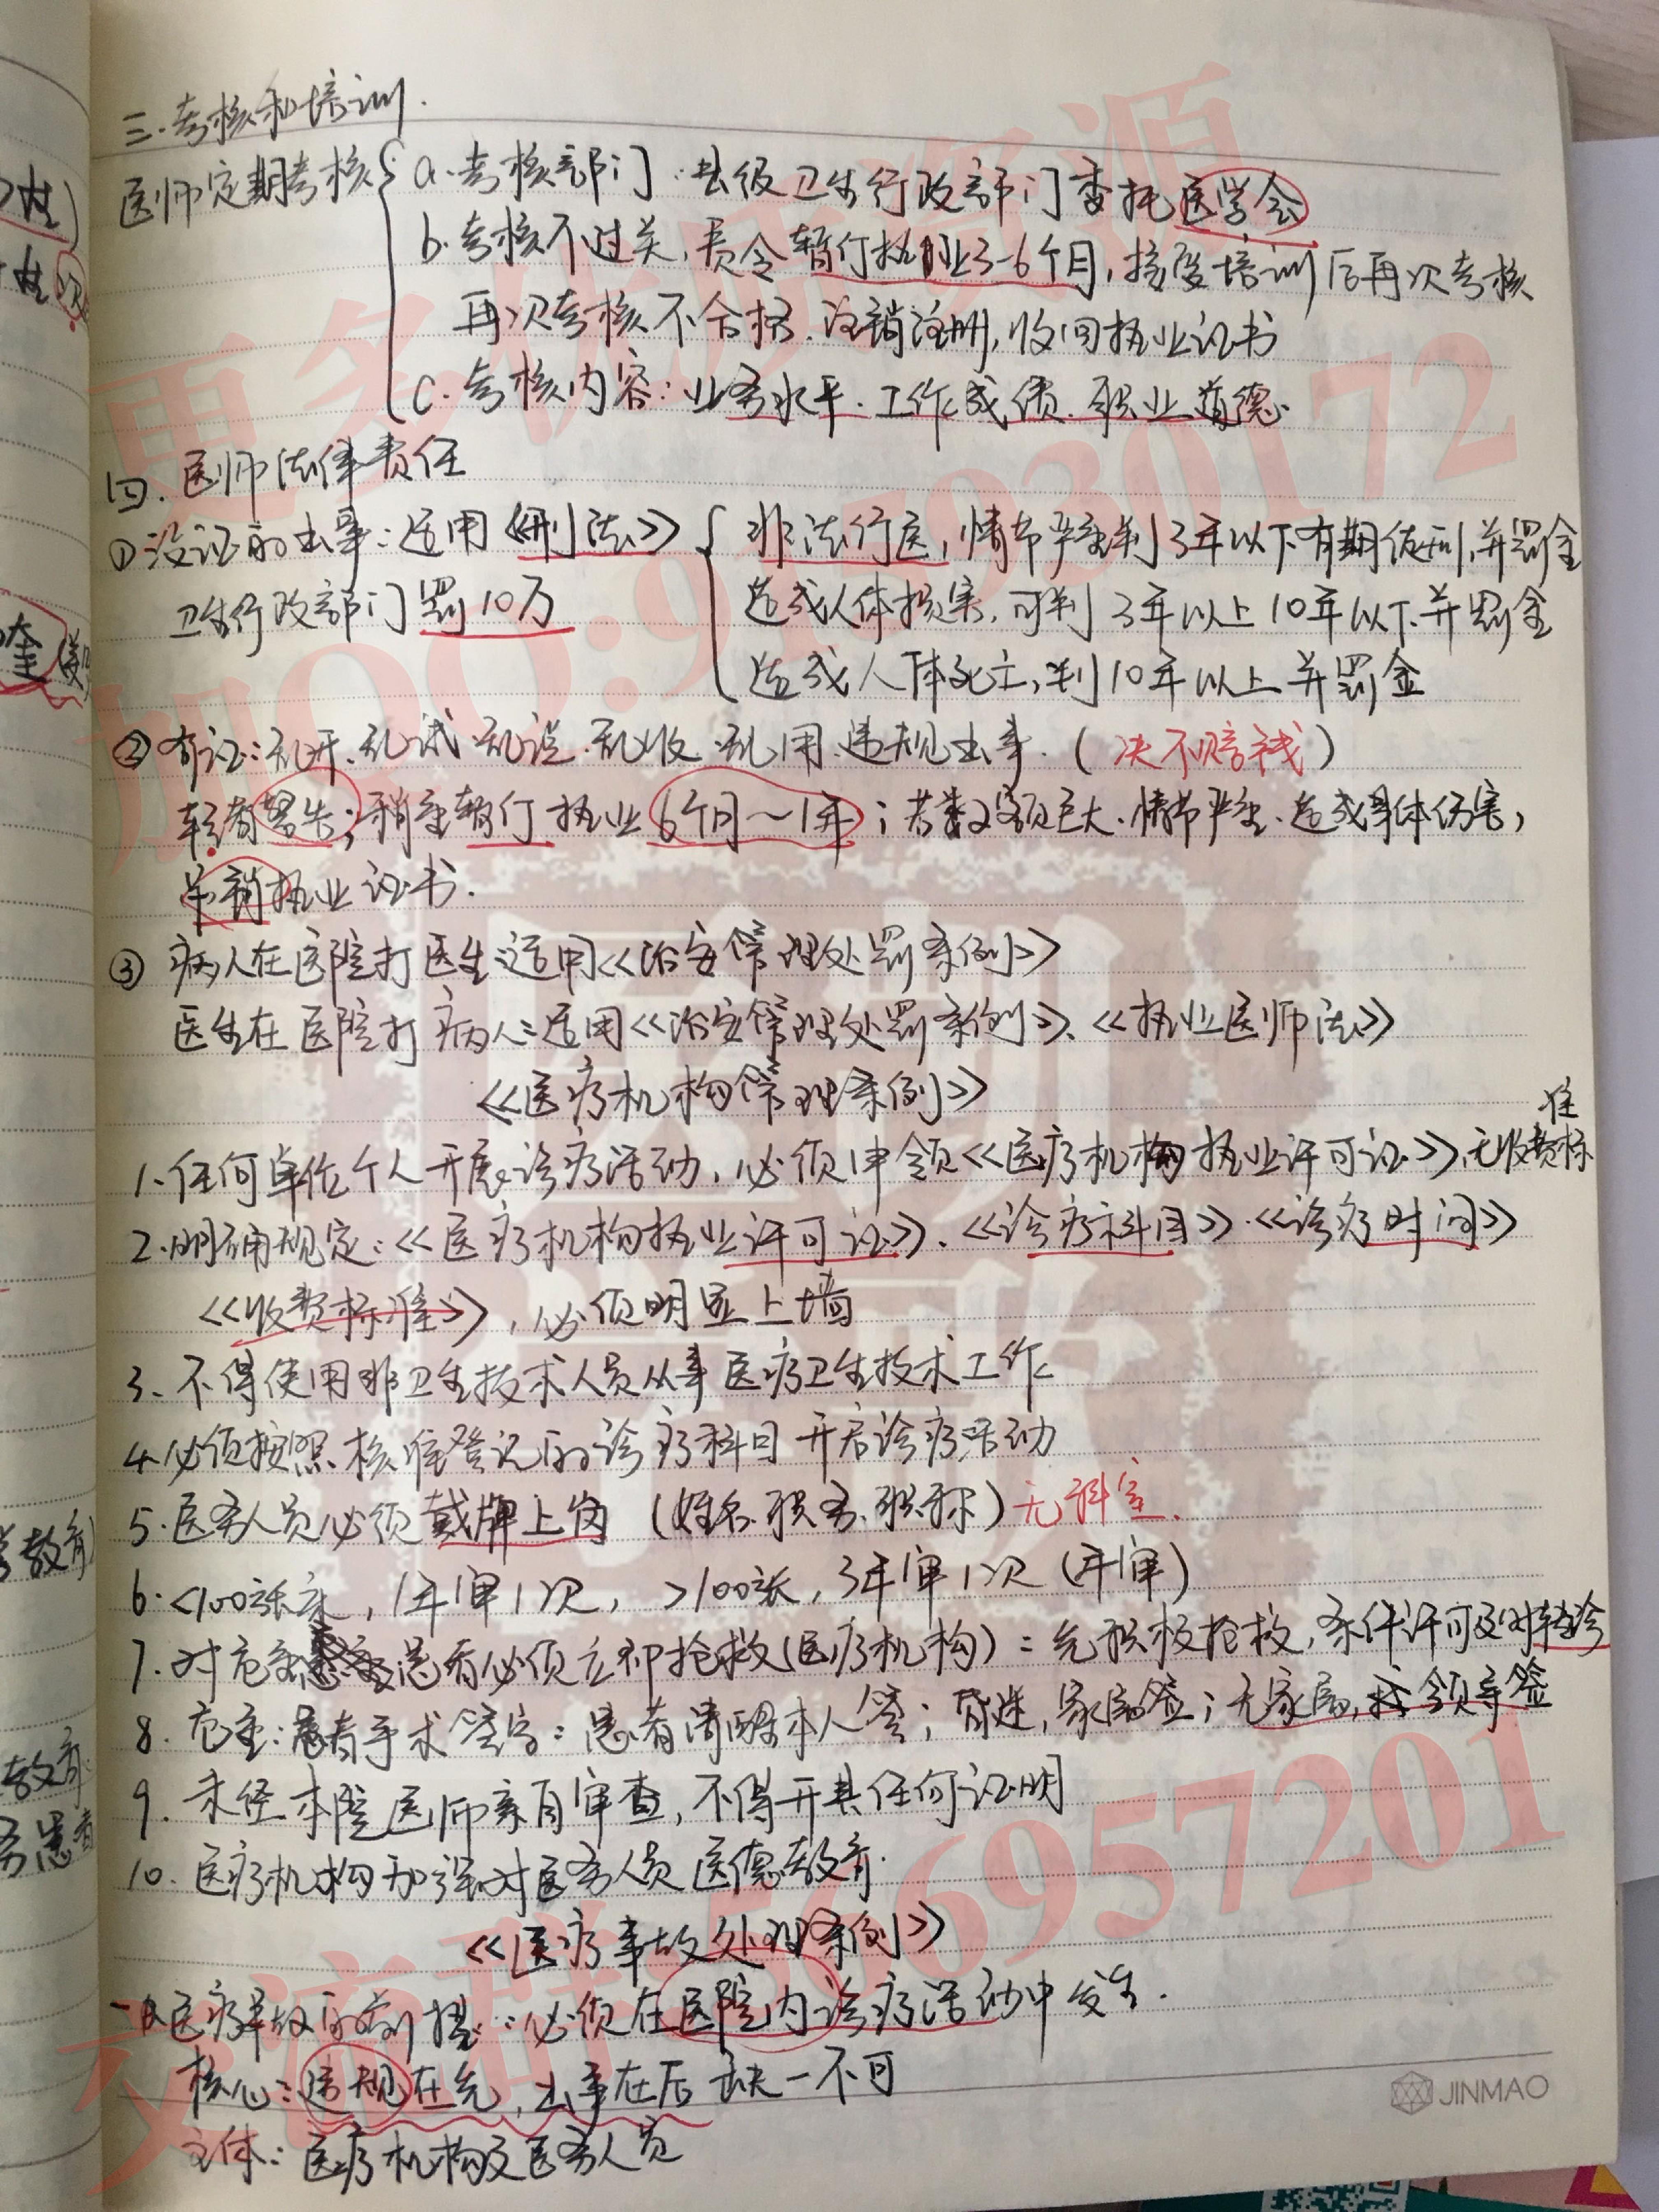 三.考核和培训.
医师定期考核 a.考核部门:县级卫生行政部门委托医学会
b.考核不过关,责令暂停执业3-6个月,接受培训后再次考核
再次考核不合格.注销注册,收回执业证书
c.考核内容:业务水平.工作成绩.职业道德.
四.医师法律责任
①没证的出事:适用《刑法》 非法行医,情节严重判3年以下有期徒刑,并罚金
卫生行政部门罚10万 造成人体损害,可判3年以上10年以下.并罚金
造成人体死亡,判10年以上并罚金
②有证:乱开.乱试.乱说.乱收.乱用.违规出事.(决不赔钱)
轻者警告;稍重暂停执业6个月~1年;若数额巨大.情节严重.造成身体伤害,
吊销执业证书.
③病人在医院打医生:适用《治安管理处罚条例》
医生在医院打病人:适用《治安管理处罚条例》、《执业医师法》
《医疗机构管理条例》
准
1.任何单位个人开展诊疗活动,必须申领《医疗机构执业许可证》,无收费标
2.明确规定:《医疗机构执业许可证》、《诊疗科目》.《诊疗时间》
《收费标准》,必须明显上墙
3.不得使用非卫生技术人员从事医疗卫生技术工作
4.必须按照核准登记的诊疗科目开启诊疗活动
5.医务人员必须戴牌上岗(姓名.职务.职称)无科室.
6.<100张床,1年审1次,>100张,3年审1次(年审)
7.对危重患者必须立即抢救(医疗机构):先积极抢救,条件许可及时转诊
8.危重:患者手术签字:患者清醒本人签;昏迷,家属签;无家属,找领导签
9.未经本院医师亲自审查,不得开具任何证明
10.医疗机构加强对医务人员医德教育.
《医疗事故处理条例》
一.医疗事故的前提:必须在医院内诊疗活动中发生.
核心:违规在先,出事在后 缺一不可
主体:医疗机构及医务人员
JINMAO
更多优质资源
加QQ:
交流群:566957201